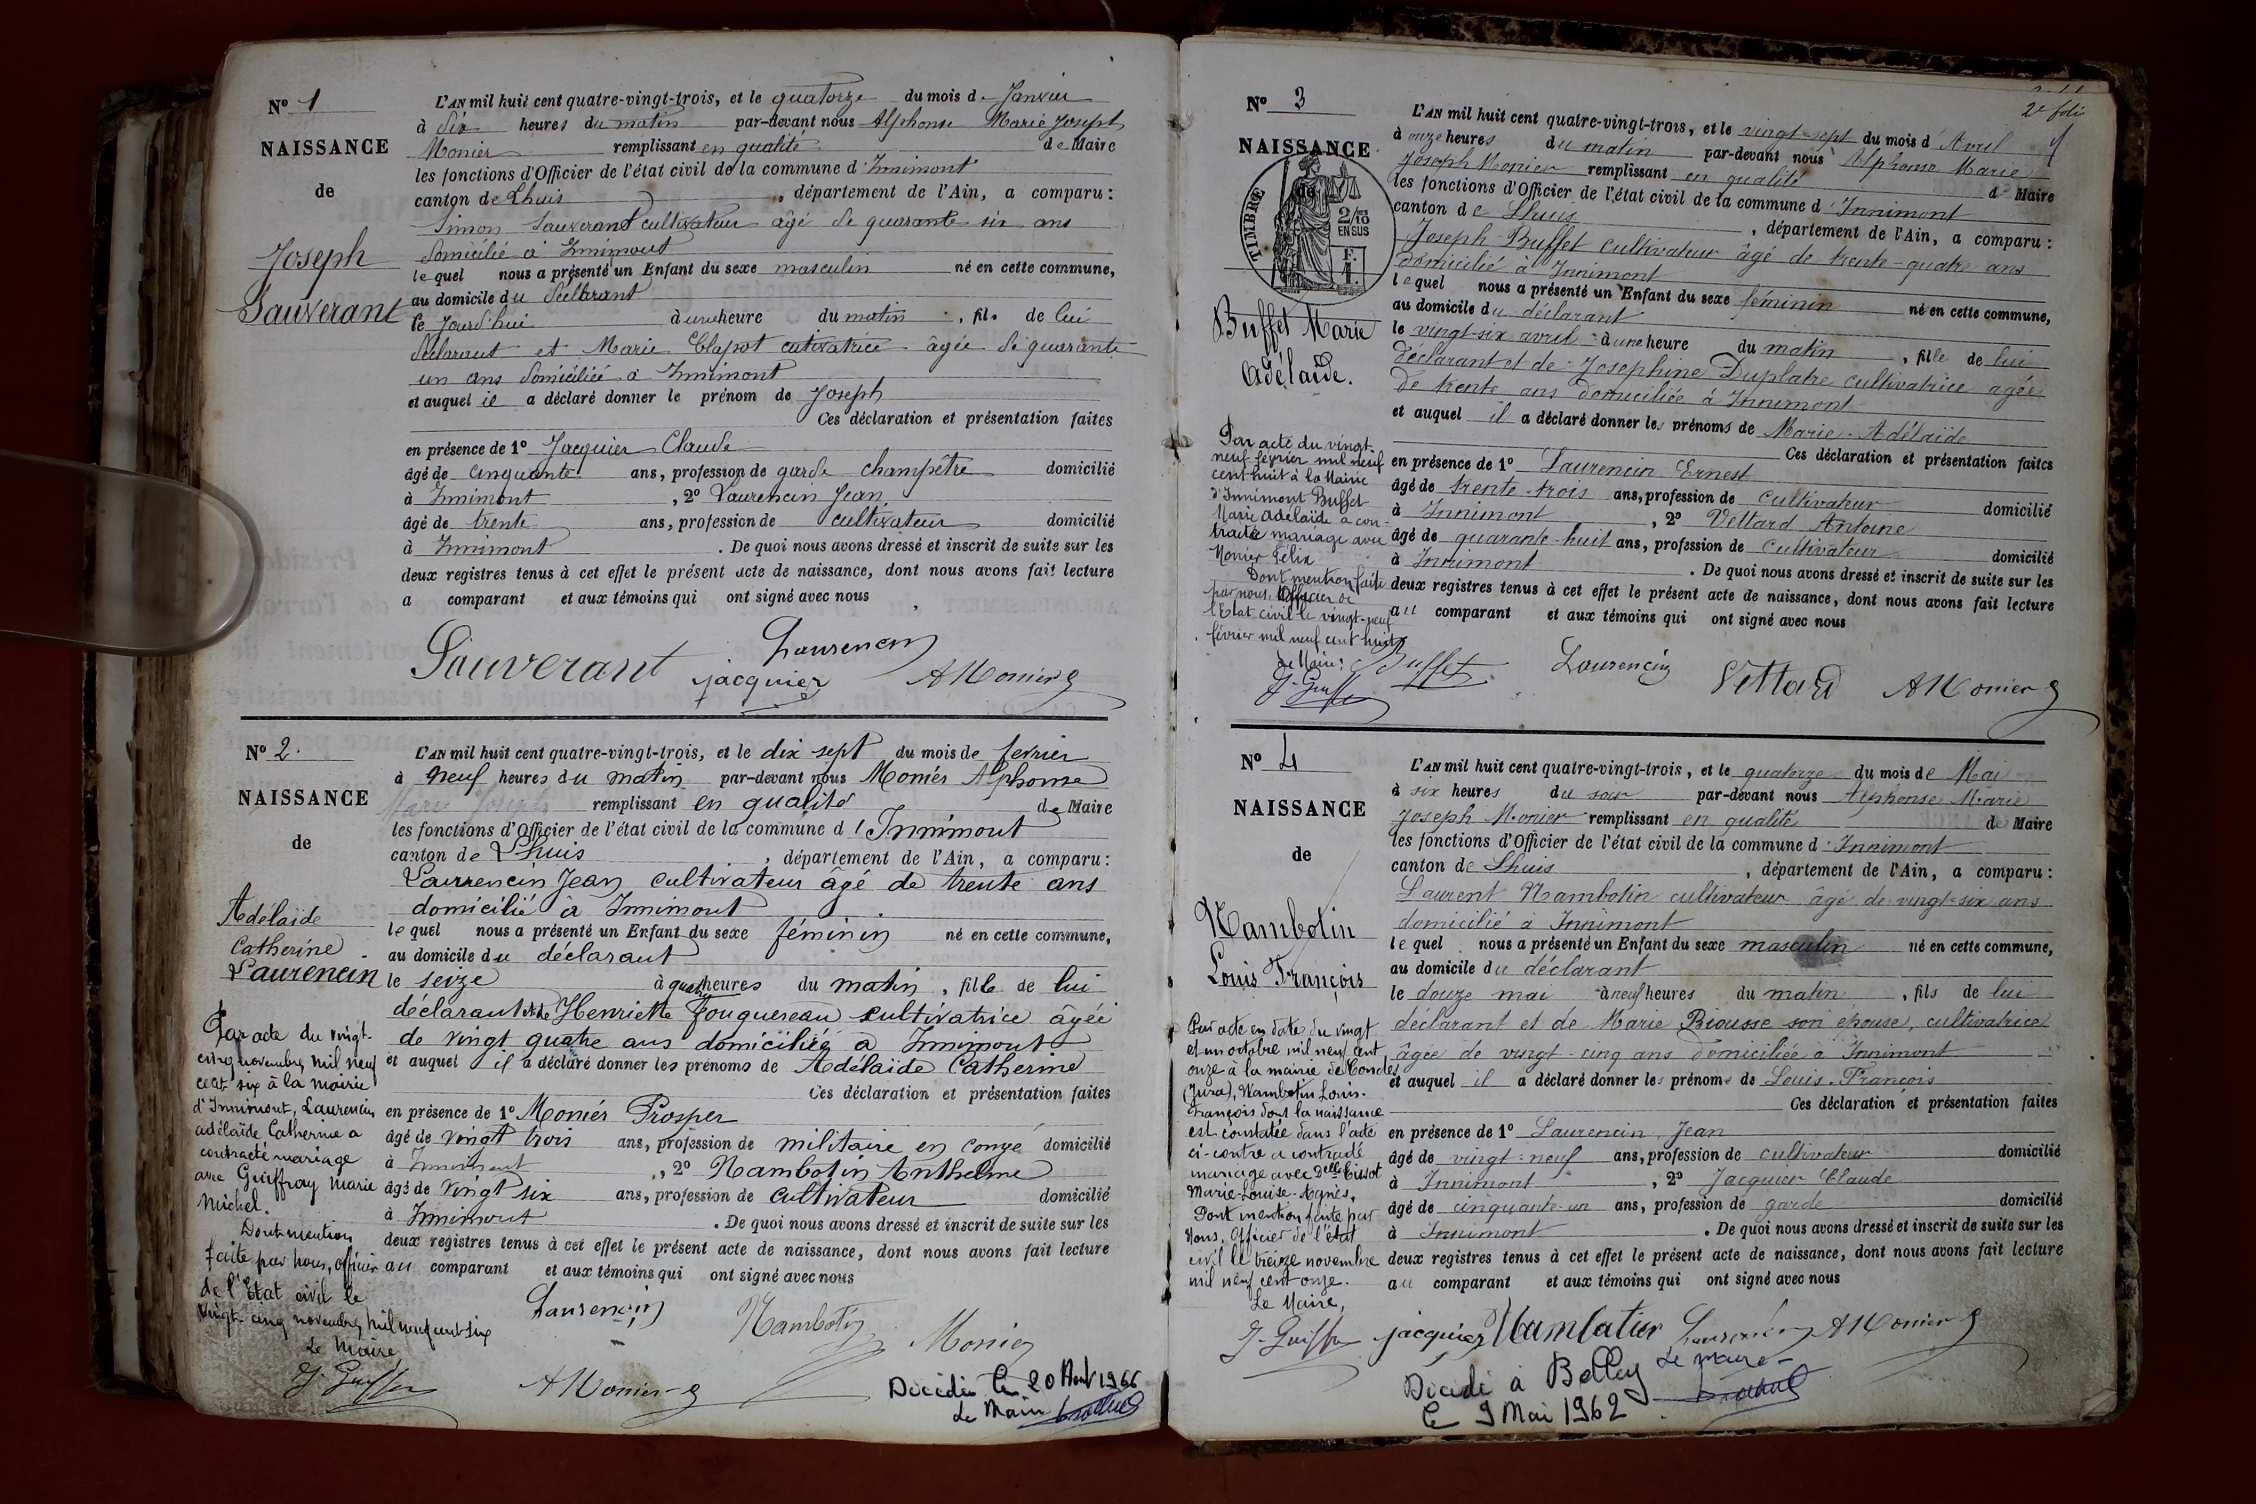 N° 1
NAISSANCE
de
Joseph
Sauverant
L'AN mil huit cent quatre-vingt-trois, et le quatorze du mois de Janvier
à dix heures du matin par-devant nous Alphonse Marie Joseph
Monier remplissant en qualité de Maire
les fonctions d'Officier de l'état civil de la commune d'Innimont
canton de Lhuis, département de l'Ain, a comparu :
Simon Sauverant cultivateur âgé de quarante six ans
domicilié à Innimont
lequel nous a présenté un Enfant du sexe masculin né en cette commune,
au domicile du déclarant
le jourd'hui à une heure du matin, fils de lui
déclarant et Marie Clapot cutivatrice âgée de quarante
un ans domiciliée à Innimont
et auquel il a déclaré donner le prénom de Joseph
Ces déclaration et présentation faites
en présence de 1° Jacquier Claude
âgé de cinquante ans, profession de garde champêtre domicilié
à Innimont, 2° Laurencin Jean
âgé de trente ans, profession de cultivateur domicilié
à Innimont. De quoi nous avons dressé et inscrit de suite sur les
deux registres tenus à cet effet le présent acte de naissance, dont nous avons fait lecture
a comparant et aux témoins qui ont signé avec nous
Sauverant Laurencin
jacquier A Monier
N° 2.
NAISSANCE
de
Adélaïde
Catherine
Laurencin
L'AN mil huit cent quatre-vingt-trois, et le dix sept du mois de fevrier
à neuf heures du matin par-devant nous Moniér Alphonse
Marie Joseph remplissant en qualité de Maire
les fonctions d'Officier de l'état civil de la commune d'Innimont
canton de Lhuis, département de l'Ain, a comparu :
Laurencin Jean cultivateur âgé de trente ans
domicilié à Innimont
lequel nous a présenté un Enfant du sexe féminin né en cette commune,
au domicile du déclarant
le seize à quatre heures du matin, fille de lui
déclarant et de Henriette Fouquereau cultivatrice âgée
de vingt quatre ans domiciliée à Innimont
et auquel il a déclaré donner les prénoms de Adélaïde Catherine
Ces déclaration et présentation faites
en présence de 1° Moniér Prosper
âgé de vingt trois ans, profession de militaire en congé domicilié
à Innimont, 2° Nambotin Anthelme
âgé de vingt six ans, profession de cultivateur domicilié
à Innimont. De quoi nous avons dressé et inscrit de suite sur les
deux registres tenus à cet effet le présent acte de naissance, dont nous avons fait lecture
au comparant et aux témoins qui ont signé avec nous
Par acte du vingt-
cinq novembre mil neuf
cent six à la mairie
d'Innimont, Laurencin
adélaïde Catherine a
contracté mariage
avec Guiffray Marie
Michel.
Dont mention
faite par nous, officier
de l'Etat civil le
vingt-cinq novembre mil neuf cent six
Le Maire
Laurencin Nambotin Monier
A Monier
Décédée le 20 1966
Le Maire
N° 3
NAISSANCE
de
TIMBRE
2/10
EN SUS
F.
1.
2e folio
Buffet Marie
Adélaïde.
L'AN mil huit cent quatre-vingt-trois, et le vingt-sept du mois d'Avril
à onze heures du matin par-devant nous Alphonse Marie
Joseph Monier remplissant en qualité de Maire
les fonctions d'Officier de l'état civil de la commune d'Innimont
canton de Lhuis, département de l'Ain, a comparu :
Joseph Buffet cultivateur âgé de trente-quatre ans
domicilié à Innimont
lequel nous a présenté un Enfant du sexe féminin né en cette commune,
au domicile du déclarant
le vingt-six avril à une heure du matin, fille de lui
déclarant et de Josephine Duplatre cultivatrice agée
de trente ans domiciliée à Innimont
et auquel il a déclaré donner les prénoms de Marie-Adélaïde
Ces déclaration et présentation faites
en présence de 1° Laurencin Ernest
âgé de trente-trois ans, profession de cultivateur domicilié
à Innimont, 2° Vettard Antoine
âgé de quarante-huit ans, profession de cultivateur domicilié
à Innimont. De quoi nous avons dressé et inscrit de suite sur les
deux registres tenus à cet effet le présent acte de naissance, dont nous avons fait lecture
au comparant et aux témoins qui ont signé avec nous
Par acte du vingt-
neuf février mil neuf
cent huit à la Mairie
d'Innimont Buffet
Marie Adélaïde a con-
tracté mariage avec
Monier Félix
Dont mention faite
par nous, Officier de
l'Etat civil le vingt-neuf
février mil neuf cent huit
Le Maire :
Buffet Laurencin Vettard A Monier
N° 4
NAISSANCE
de
Nambotin
Louis François
L'AN mil huit cent quatre-vingt-trois, et le quatorze du mois de Mai
à six heures du soir par-devant nous Alphonse Marie
Joseph Monier remplissant en qualité de Maire
les fonctions d'Officier de l'état civil de la commune d'Innimont
canton de Lhuis, département de l'Ain, a comparu :
Laurent Nambotin cultivateur âgé de vingt-six ans
domicilié à Innimont
lequel nous a présenté un Enfant du sexe masculin né en cette commune,
au domicile du déclarant
le douze mai à neuf heures du matin, fils de lui
déclarant et de Marie Biousse son épouse, cultivatrice
âgée de vingt-cinq ans domiciliée à Innimont
et auquel il a déclaré donner les prénoms de Louis-François
Ces déclaration et présentation faites
en présence de 1° Laurencin Jean
âgé de vingt-neuf ans, profession de cultivateur domicilié
à Innimont, 2° Jacquier Claude
âgé de cinquante-un ans, profession de garde domicilié
à Innimont. De quoi nous avons dressé et inscrit de suite sur les
deux registres tenus à cet effet le présent acte de naissance, dont nous avons fait lecture
au comparant et aux témoins qui ont signé avec nous
Par acte en date du vingt
et un octobre mil neuf cent
onze à la mairie de Condes
(Jura), Nambotin Louis-
François dont la naissance
est constatée dans l'acte
ci-contre a contracté
mariage avec Delle Tissot
Marie-Louise-Agnès.
Dont mention faite par
Nous, Officier de l'état
civil le treize novembre
mil neuf cent onze.
Le Maire,
jacquier Nambotin Laurencin A Monier
Décédé à Belley Le maire
le 9 Mai 1962